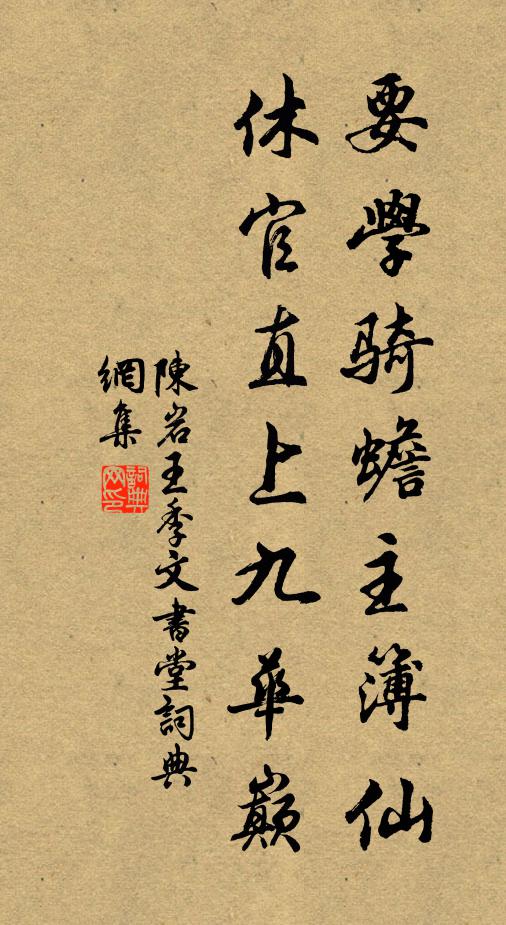 要學骑蟾主簿仙
休官直上九華巔
陳岩王季文書堂詞典
網集
詞典
网印